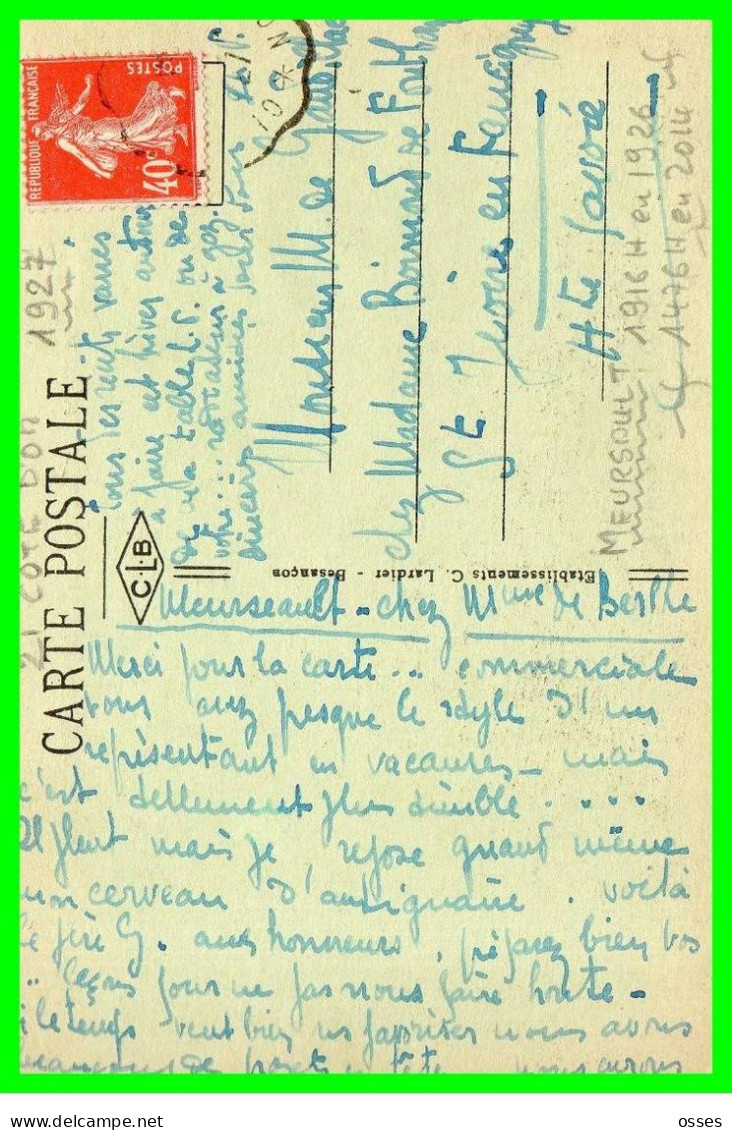 REPUBLIQUE FRANÇAISE
POSTES
40c
21 COTE DOR 1927
CARTE POSTALE
C.L.B
Etablissements C. Lardier - Besançon
Meurseault - chez Mme de Berthe
Merci pour la carte... commerciale
vous avez presque le style d'un
représentant en vacances - mais
c'est tellement plus simple . ...
Il pleut mais je repose quand même
mon cerveau d'antiquaire . voilà
le père G. aux honneurs, préparez bien vos
leçons pour ne pas nous faire honte -
si le temps veut bien ns favoriser nous avons
beaucoup de projets en tête nous aurons
tous ces
à faire cet hiver autour
de la table L.P. ou de
votre ...
sincères amitiés
Monsieur M. de
chez Madame
St Jeoire en Faucigny
Hte Savoie
MEURSAULT 1916 H en 1926
1476 H en 2014
osses